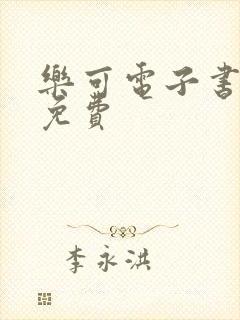 樂可電子書
免費
李永洪